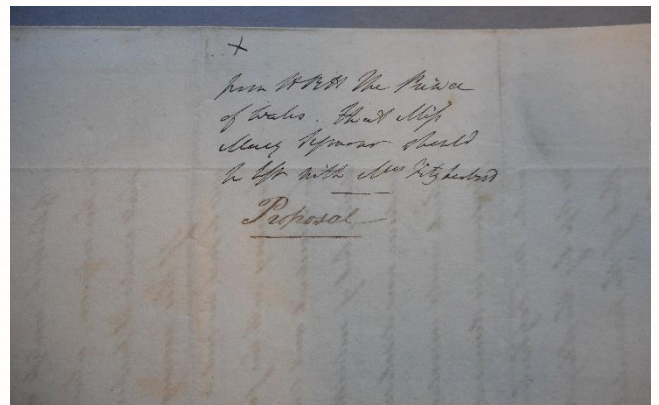 x
from HRH The Prince
of Wales. that Miss
Mary Seymour should
be left with Mrs Fitzherbert
Proposal